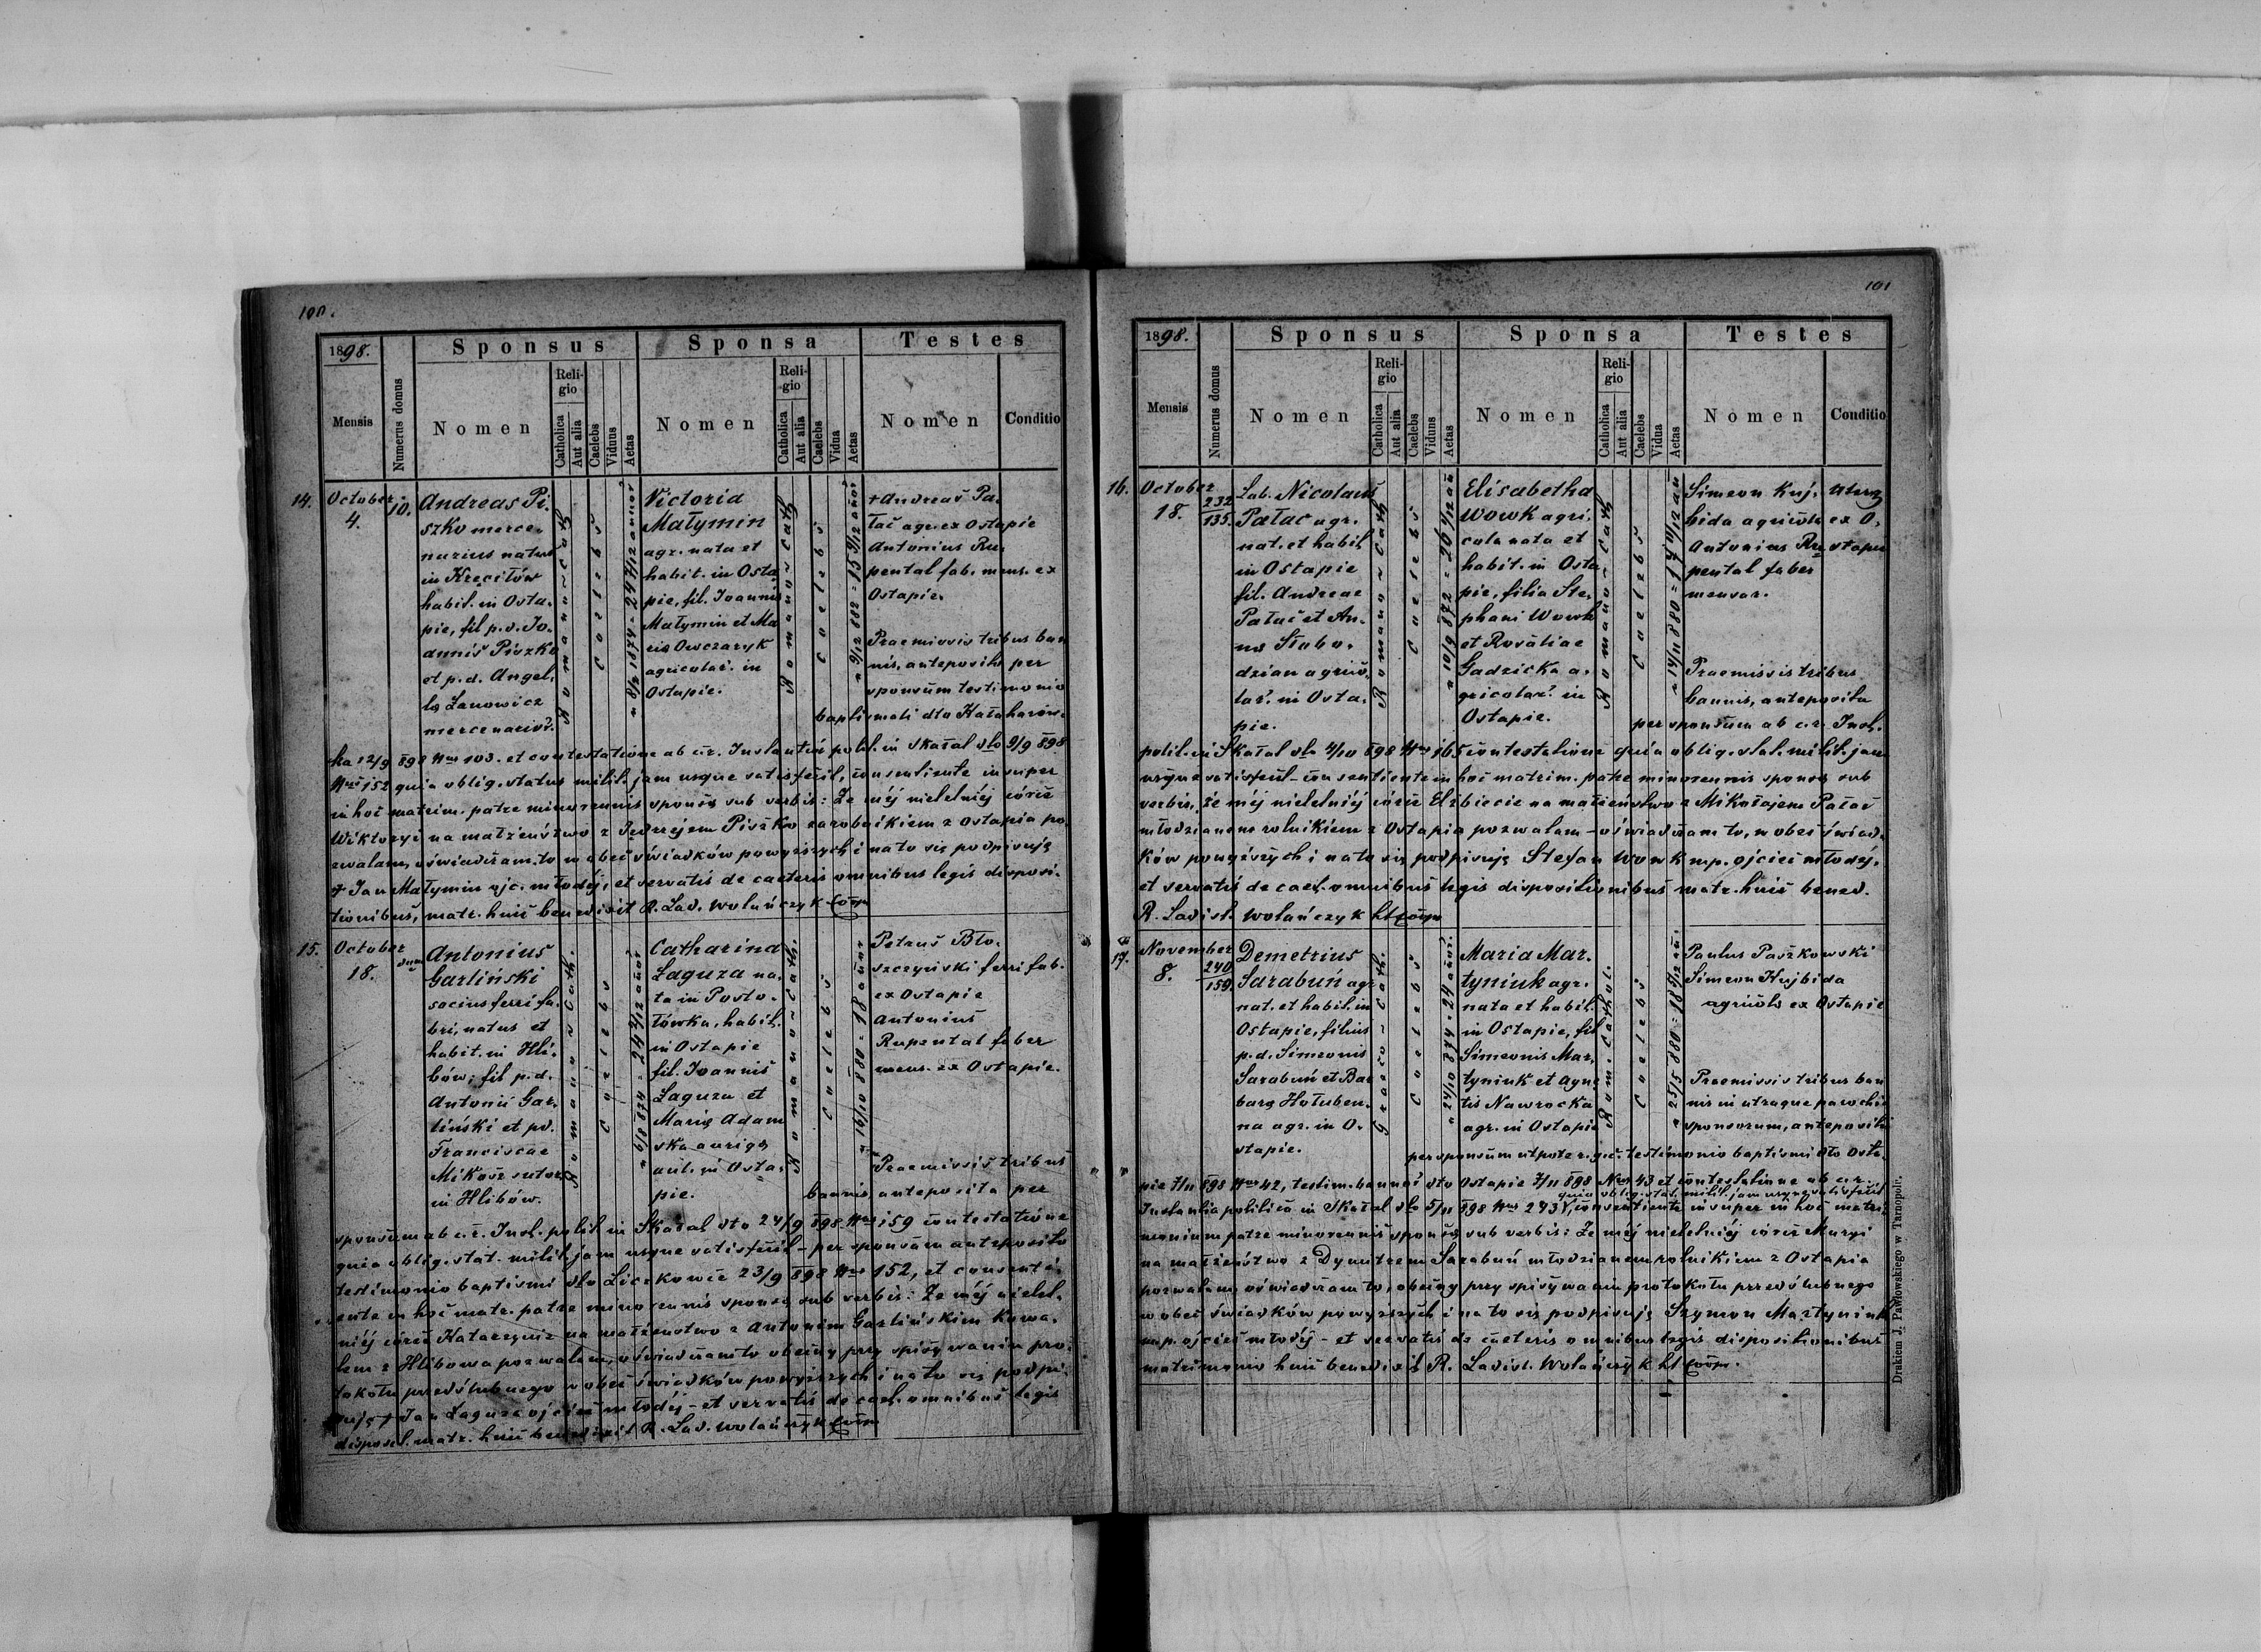 100.
1898.
Mensis
Numerus domus
Sponsus
Nomen
Religio
Catholica
Aut alia
Caelebs
Viduus
Aetas
Sponsa
Nomen
Religio
Catholica
Aut alia
Caelebs
Vidua
Aetas
Testes
Nomen
Conditio
14.
October
4.
10.
Andreas Pi-
szko merce-
narius natus
in Kręciłów
habit. in Osta-
pie, fil p. d. Jo-
annis Piszko
et p. d. Angel.
Zanowicz
Romano-cath
Caelebs
Victoria
Małymin
agr. nata et
habit. in Osta
pie, fil. Joannis
Małymin et Ma
ria Owczaryk
agricolar. in
Ostapie.
Romano-cath
Caelebs
+ Andreas Pa-
łac agr. ex Ostapie
Antonius Ru-
pental fab. mens. ex
Ostapie.
Praemissis tribus ban
nis, anteposito per
sponsum testimonio
baptismali dto
12/9 898 Nro 103. et contestatione ab c.r. Instantia polit. in Skałat dto 9/9 898
Nro 152 quia oblig. status milit. jam usque satisfecit, consentiente insuper
in hoc matrim. patre minorennis sponsae sub verbis: Że mej nieletniéj córce
Wiktoryi na małżeństwo z Jędrzejem Piszko zarobnikiem z Ostapia po-
zwalam, oświadczam to w obec świadków powyższych i na to się podpisuję
+ Jan Małymin ojc. młodéj, et servatis de caeteris omnibus legis disposi-
tionibus, matr. huic benedixit R. Lad. Wolańczyk
15.
October
18.
Antonius
Garliński
socius ferri fa-
bri, natus et
habit. in Hli-
bów, fil p. d.
Antonii Gar-
liński et pd.
Franciscae
Mikosz
in Hlibów.
Romano-cath.
Caelebs
Catharina
Łaguza na-
ta in Posto-
łówka, habit.
in Ostapie
fil. Joannis
Łaguza et
Maria Adam
ska aurigae
aul. in Osta-
pie.
Romano-cath.
Caelebs
16/10 880 = 18 annor
Petrus Bło-
szczyński ferri fab.
ex Ostapie
Antonius
Rupental faber
mens. ex Ostapie.
Praemissis tribus
bannis anteposita per
sponsum ab c.r. Inst. polit. in Skałat dto 24/9 898 Nro 159 contestatione
quia oblig. stat. milit. jam usque satisfecit - per sponsam anteposito
testimonio baptismi dto Liczkowce 23/9 898 Nro 152, et consenti-
ente in hoc matr. patre minorennis sponsae sub verbis: Że mej nielet-
niéj córce Katarzynie na małżeństwo z Antonim Garlińskim Kowa-
lem z Hlibowa pozwalam, oświadczam to obecny przy spisywaniu pro-
tokołu przedślubnego w obec świadków powyższych i na to się podpi-
suję + Jan Łaguza ojciec młodéj - et servatis de caet. omnibus legis
disposit. matr. huic benedixit R. Lad. Wolańczyk
101
1898.
Mensis
Numerus domus
Sponsus
Nomen
Religio
Catholica
Aut alia
Caelebs
Viduus
Aetas
Sponsa
Nomen
Religio
Catholica
Aut alia
Caelebs
Vidua
Aetas
Testes
Nomen
Conditio
16.
October
18.
232
135.
Lab. Nicolaus
Pałac agr.
nat. et habit
in Ostapie
fil. Andreae
Pałac et An-
na Słobo-
dzian agrico-
lar. in Osta-
pie.
Romano-cath
Caelebs
10/9 872 = 26 1/12 an
Elisabetha
Wowk agri-
cola nata et
habit. in Osta
pie, filia Ste-
phani Wowk
et Rosaliae
Gadzicka a-
gricolar. in
Ostapie.
Romano-cath
Caelebs
Simeon Kuj-
bida agricola
Antonius Ru-
pental faber
mensar.
ex O-
stapie
Praemissis tribus
bannis, anteposita
per sponsum ab c.r. Inst.
polit. in Skałat dto 4/10 898 Nro 165 contestatione quia oblig. stat. milit. jam
usque satisfecit - consentiente in hoc matrim. patre minorennis sponsae sub
verbis, że mej nieletniéj córce Elżbiecie na małżeństwo z Mikołajem Pałac
młodzianem rolnikiem z Ostapia pozwalam - oświadczam to, w obec świad-
ków powyższych i na to się podpisuję Stefan Wowk mp. ojciec młodéj.
et servatis de caet. omnibus legis dispositionibus matr. huic bened.
R. Ladisl. Wolańczyk
17.
November
8.
240
159.
Demetrius
Sarabuń agr
nat. et habit. in
Ostapie, filius
p. d. Simeonis
Sarabuń et Bar
bara Hołuben-
na agr. in O-
stapie.
Graeco-cath.
Caelebs
24/10 874 = 24 annor.
Maria Mar-
tyniuk agr.
nata et habit.
in Ostapie, fil
Simeonis Mar-
tyniuk et Agne
tis Nawrocka
agr. in Ostapie
Rom. Cathol.
Caelebs
Paulus Paszkowski
Simeon Kujbida
agricola ex Ostapie
Praemissis tribus ban
nis in utraque parochia
sponsorum, anteposito
per sponsum utpote r. gr. testimonio baptismi dto Osta-
pie 7/11 898 Nro 42, testim. bannor dto Ostapie 7/11 898 Nro 43 et contestatione ab c.r.
quia oblig. stat. milit. jam usque satisfecit
Instantia politica in Skałat dto 5/11 898 Nro 243, consentiente insuper in hoc matri-
monium patre minorennis sponsae sub verbis: Że mej nieletniéj córce Maryi
na małżeństwo z Dymitrem Sarabuń młodzianem rolnikiem z Ostapia
pozwalam, oświadczam to, obecny przy spisywaniu protokołu przedślubnego
w obec świadków powyższych i na to się podpisuję Szymon Martyniuk
mp. ojciec młodéj - et servatis de caeteris omnibus legis dispositionibus
matrimonio huic benedixit R. Ladisl. Wolańczyk
Drukiem J. Pawłowskiego w Tarnopolu.